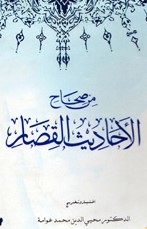 من صحاح
الأحاديث القصار
الدكتور محيي الدين محمد عوامة